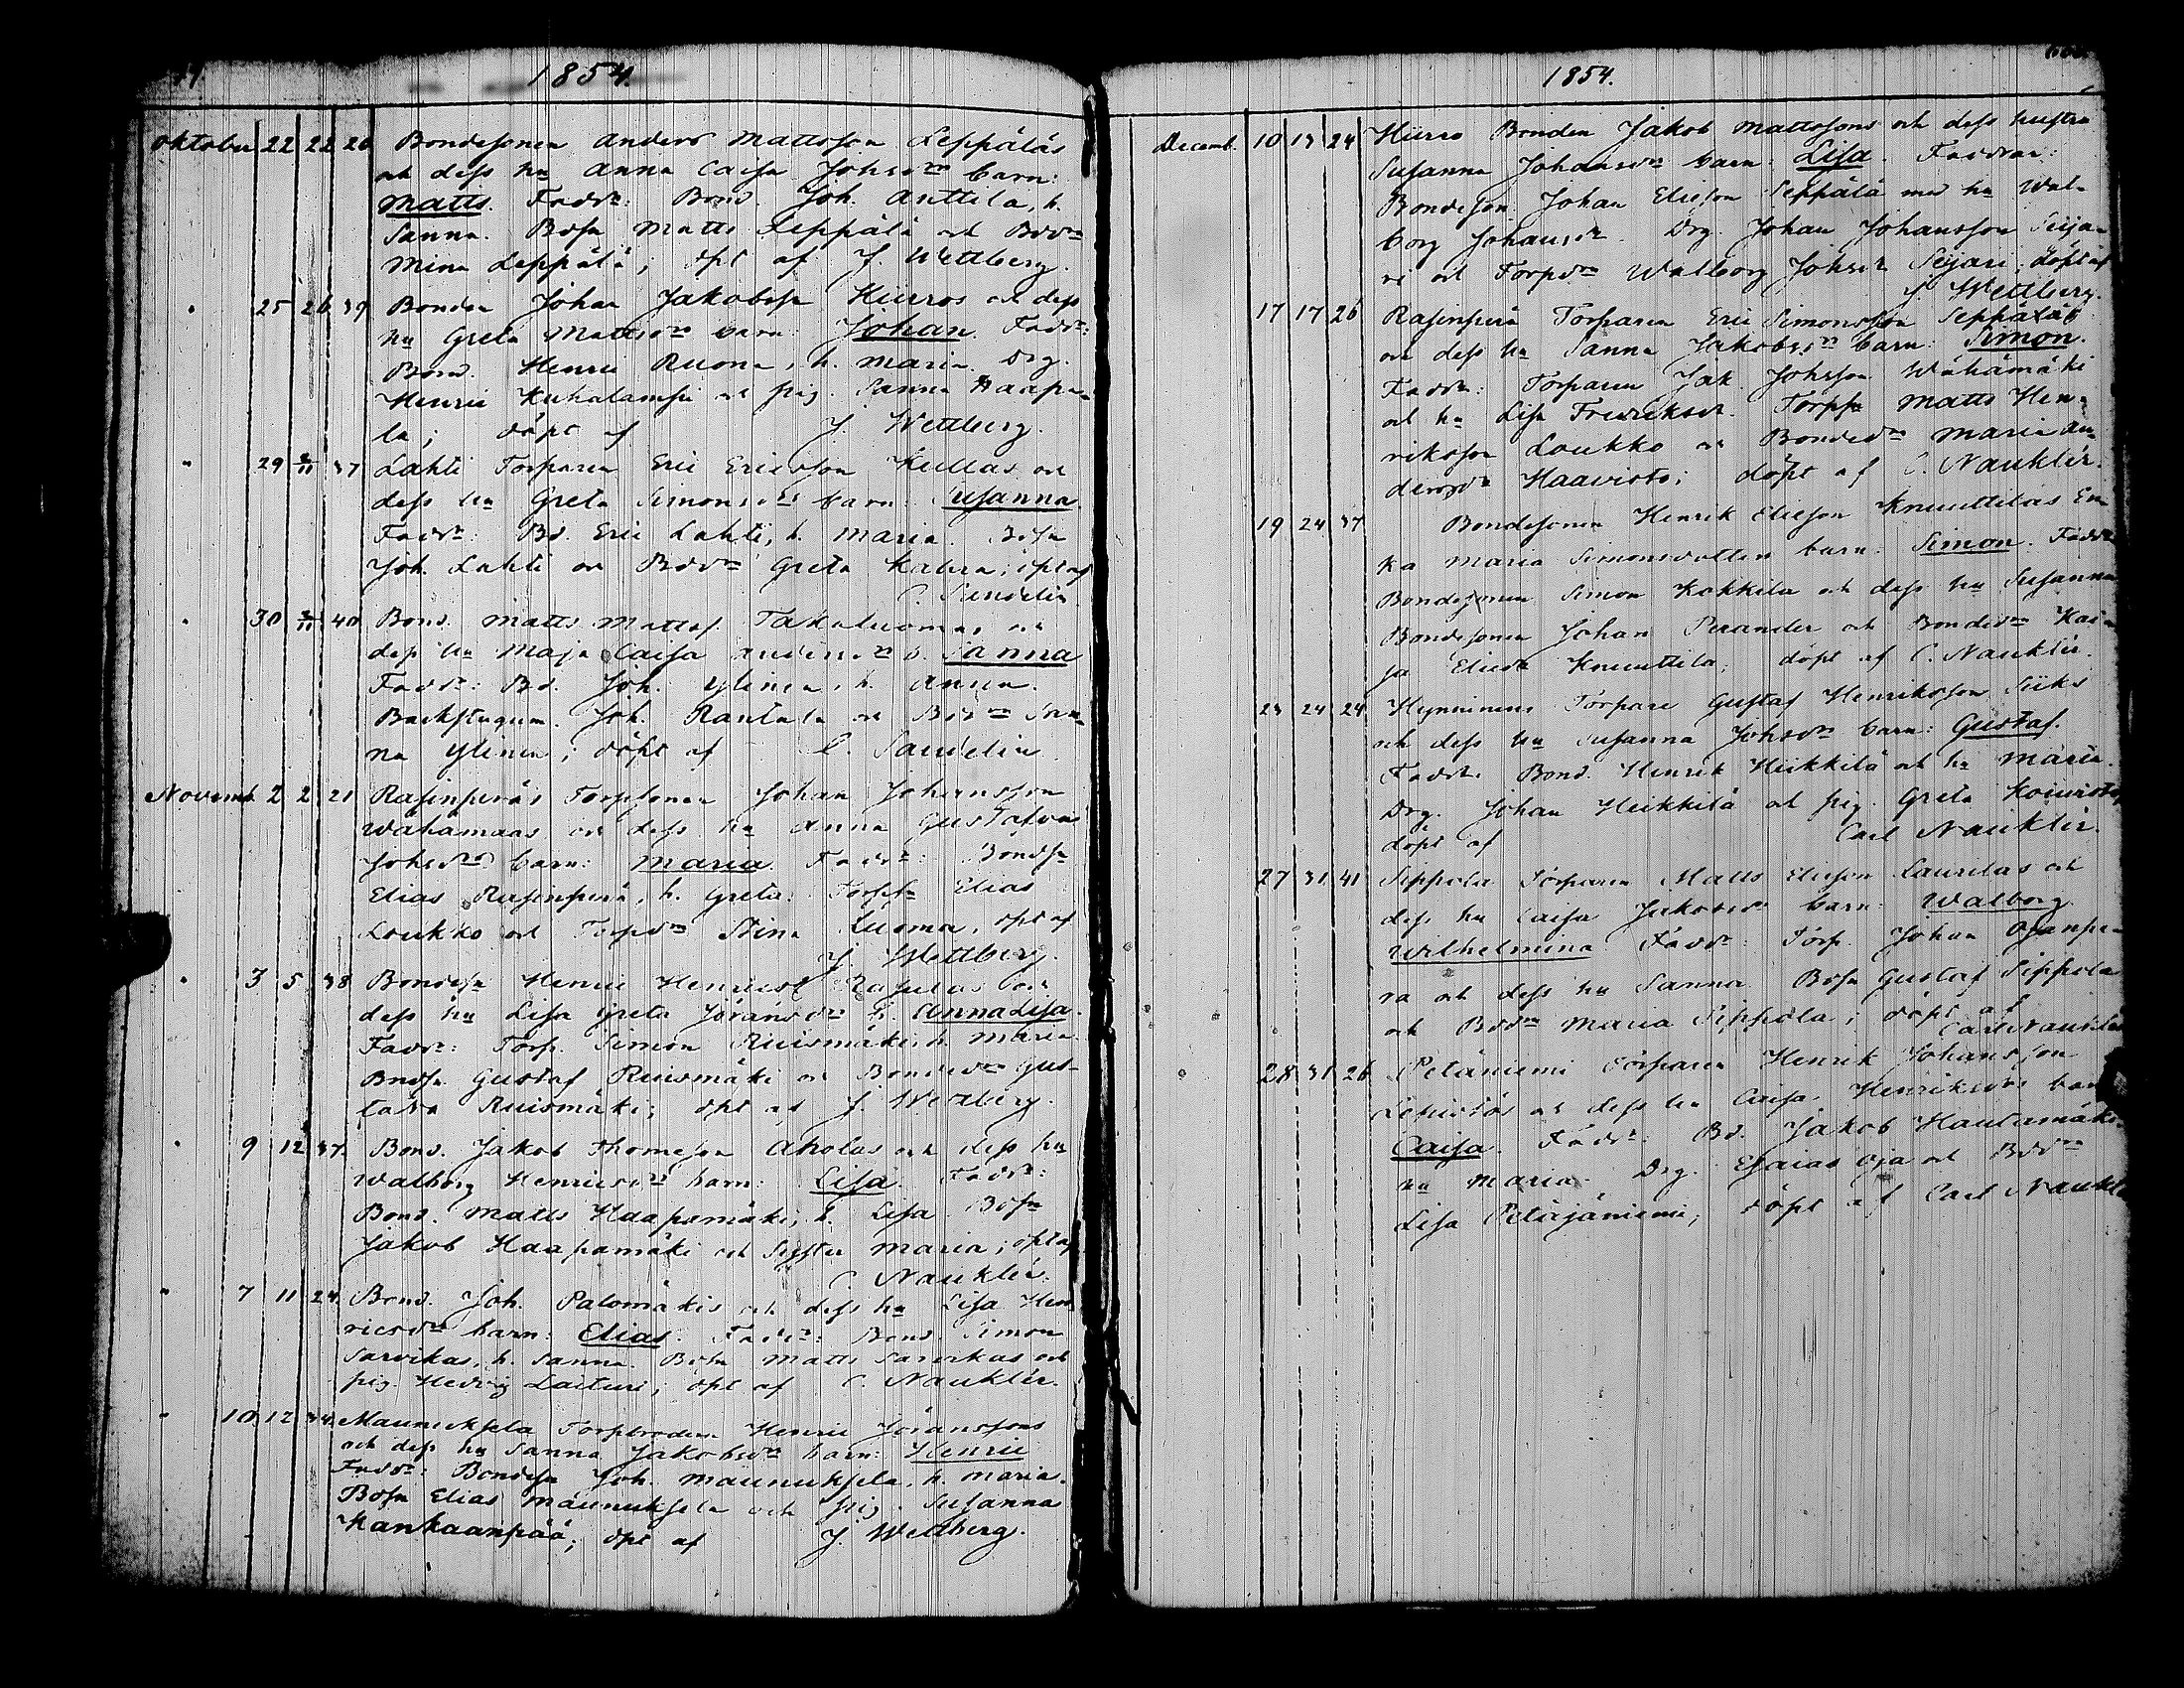 1854.
Oktober 22 22 26 Bondesonen Anders Mattsson Leppäläs
och dess hu Anna Caisa Johsdrs barn:
Matts. Faddr: Bond. Joh. Anttila, h.
Sanna. Bdsn Matts Leppälä och Bddr
Mina Leppälä; döpt af J. Wettberg.
" 25 26 39 Bonden Johan Jakobssn Hiirros och dess
hu Greta Mattsdrs barn: Johan. Faddr:
Bond. Henric Ruona, h. Maria. Drg.
Henric och pig. Sanna Haapa-
la; döpt af J. Wettberg.
" 29 2/11 37 Lahti Torparen Eric Ericsson Kullas och
dess hu Greta Simonsdrs barn: Susanna
Faddr: Bd. Eric Lahti, h. Maria. Bdsn
Joh. Lahti och Bddr Greta ; dpt af
C. Sandelin
" 30 2/11 40 Bond. Matts Mattss. Takaluomas och
dess hu Maja Caisa Andersdrs b. Sanna
Faddr: Bd. Joh. Ylinen, h. Anna.
Backstugum. Joh. Rantala och Bddr San-
na Ylinen; döpt af C. Sandelin
Novemb. 2 2 21 Rasinperäs Torpsonen Johan Johansson
Wähämaas och dess hu Anna Gustafva
Johsdrs barn: Maria. Faddr: Bondsn
Elias Rasinperä, h. Greta. Torpsn Elias
Loukko och Torpdr Stina Luoma, dpt af
J. Wettberg.
" 3 5 38 Bondesn Henric Henricss och
dess hu Lisa Greta Jöransdrs b. Anna Lisa.
Faddr: Torp. Simon Ruismäki, h. Maria
Bndsn Gustaf Ruismäki och Bondedr Gus-
tava Ruismäki; dpt af J. Wettberg.
" 9 12 37. Bond. Jakob Thomeson Aholas och dess hu
Walborg Henricsdrs barn: Lisa. Faddr:
Bond. Matts Haapamäki, h. Lisa. Bdsn
Jakob Haapamäki och Syster Maria; dpt af
C. Nauklér.
" 7 11 24. Bond. Joh. Palomäkis och dess hu Lisa Hen
ricsdrs barn: Elias. Faddr: Bond. Simon
Sarvikas, h. Sanna. Bdsn Matts Sarvikas och
pig. Hedvig Laituri; dpt af C. Nauklér.
" 10 12 34. Maunuksela Torpbrodern Henric Jöranssons
och dess hu Sanna Jakobsdrs barn: Henric
Faddr: Bondesn Joh. Maunuksela, h. Maria.
Bdsn Elias Maunuksela och pig. Susanna
Kankaanpää; dpt af J. Wettberg.
1854.
Decemb. 10 13 24 Hiirro Bonden Jakob Mattssons och dess hustru
Susanna Johansdrs barn: Lisa. Faddrar:
Bondeson Johan Elieson Seppälä med hu Wal-
borg Johansdr. Drg. Johan Johansson Seija-
ri och Torpdr Walborg Johsdr Seijari; döpt af
J. Wettberg.
17 17 26 Rasinperä Torparen Eric Simonsson Seppäläs
och dess hu Sanna Jakobsdrs barn: Simon.
Faddr: Torparen Jak. Johsson Wähämäki
och hu Lisa Fredriksdr. Torpsn Matts Hen-
riksson Loukko och Bondedr Maria An-
dersdr Haavisto; döpt af C. Nauklér.
19 24 37 Bondesonen Henrik Elieson Knuuttilas En-
ka Maria Simonsdotters barn: Simon. Faddr
Bondesonen Simon Kokkila och dess hu Susanna
Bondesonen Johan Perander och Bondedr Kai-
sa Eliedr Knuuttila; döpt af C. Nauklér.
23 24 24 Hynninens Torpare Gustaf Henriksson Siiks
och dess hu Susanna Johsdrs barn: Gustaf.
Faddr. Bond. Henrik Heikkilä och hu Maria.
Drg. Johan Heikkilä och pig. Greta Koivisto
döpt af Carl Nauklér.
27 31 41 Sippola Torparen Matts Elieson Laurilas och
dess hu Caisa Jakobsdrs barn: Walborg
Wilhelmina Faddr: Torp. Johan Ojanpe-
rä och dess hu Sanna. Bdsn Gustaf Sippola
och Bddr Maria Sippola; döpt af
Carl Nauklér
28 31 26 Petäniemi Torparen Henrik Johansson
Lepistös och dess hu Caisa Henriksdrs barn
Caisa. Faddr. Bd. Jakob Hautamäki.
hu Maria. Drg. Esaias Oja och Bddr
Lisa Petäjäniemi; döpt af Carl Naukl